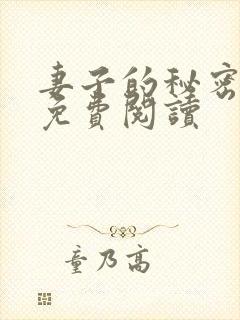 妻子的秘密
免費閱讀
童乃高